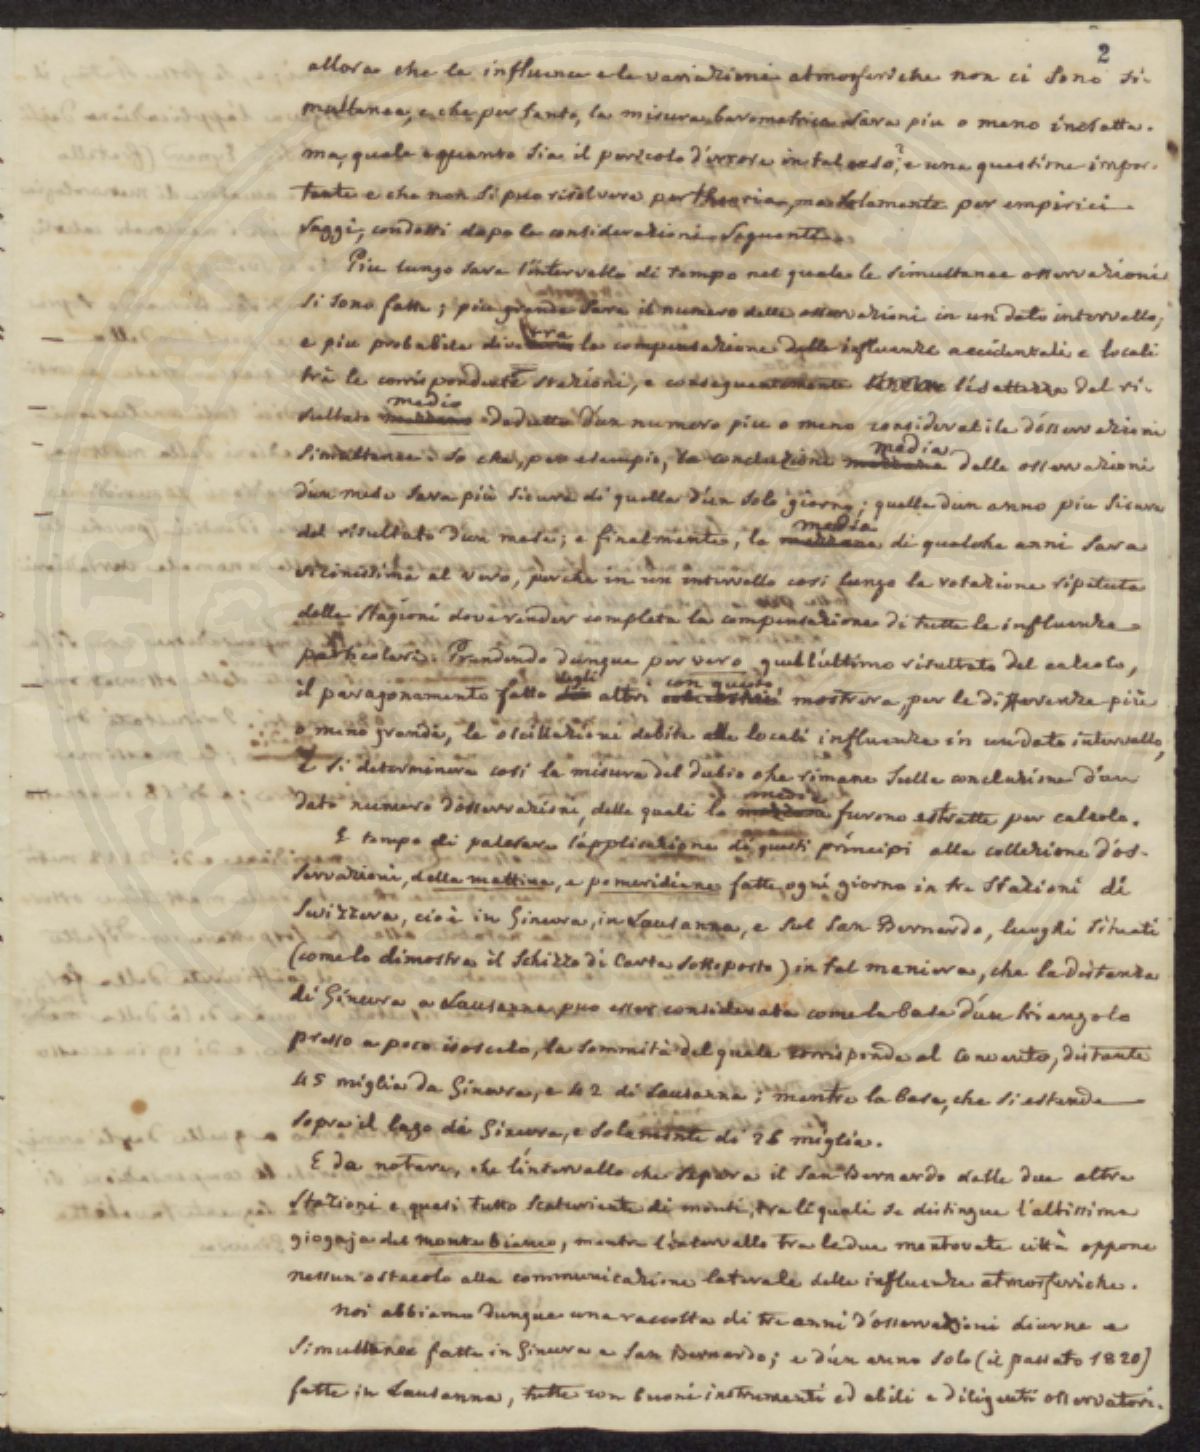 2
allora che le influenze e le variazioni atmosferiche non ci sono si-
multanee, e che per tanto, la misura barometrica sara piu o meno inesatta.
ma, quale e quanto sia il pericolo d'errore in tal caso, e una questione impor-
tante e che non si puo risolvere per theoria, ma solamente per empirici
saggi, condotti dopo le considerazioni seguenti.
Piu lungo sara l'intervallo di tempo nel quale le simultanee osservazioni
si sono fatte; piu grande sara il numero delle osservazioni in un dato intervallo,
e piu probabile diverra la compensazione delle influenze accidentali e locali
trà le corrispondenti stazioni, e conseguentemente l'esattezza del ri-
sultato medio dedutto d'un numero piu o meno considerabile d'osservazioni
simultanee: so che, per esempio, la conclusione media delle osservazioni
d'un mese sara più sicura di quella d'un solo giorno; quella d'un anno piu sicura
del risultato d'un mese; e finalmente, la media di qualche anni sara
vicinissima al vero, perche in un intervallo cosi lungo la rotazione riputata
delle stagioni dove render completa la compensazione di tutte le influenze
particolari. Prendendo dunque per vero quell'ultimo risultato del calcolo,
il paragonamento fatto degli altri con questo mostrera, per le differenze più
o meno grandi, le oscillazioni debite alle locali influenze in un dato intervallo,
E si determinera cosi la misura del dubio che rimane sulla conclusione d'un
dato numero d'osservazioni, delle quali le medie furono estratte per calcolo.
E tempo di palesare l'applicazione di questi principi alla collezione d'os-
servazioni, della mattina, e pomeridiane fatte ogni giorno in tre stazioni di
Swizzera, cioè in Ginevra, in Lausanna, e sul San Bernardo, luoghi situati
(come lo dimostra il schizzo di Carta sottoposto) in tal maniera, che la distanza
di Ginevra a Lausanna puo esser considerata come la base d'un triangolo
presso a poco isoscelo, la sommità del quale corrisponde al convento, distante
45 miglia da Ginevra, e 42 di Lausanna; mentre la base, che si estende
sopra il lago di Ginevra, e solamente di 26 miglia.
E da notare, che l'intervallo che separa il San Bernardo dalle due altre
stazioni e quasi tutto scaturiente di monti, tra li quali se distingue l'altissima
giogaja del monte bianco, mentre l'intervallo tra le due mentovate città oppone
nessun ostacolo alla communicazione laterale delle influenze atmosferiche.
Noi abbiamo dunque una raccolta di tre anni d'osservazioni diurne e
simultanee fatte in Ginevra e San Bernardo; e d'un anno solo (il passato 1820)
fatte in Lausanna, tutte con buoni instrumenti ed abili e diligenti osservatori.